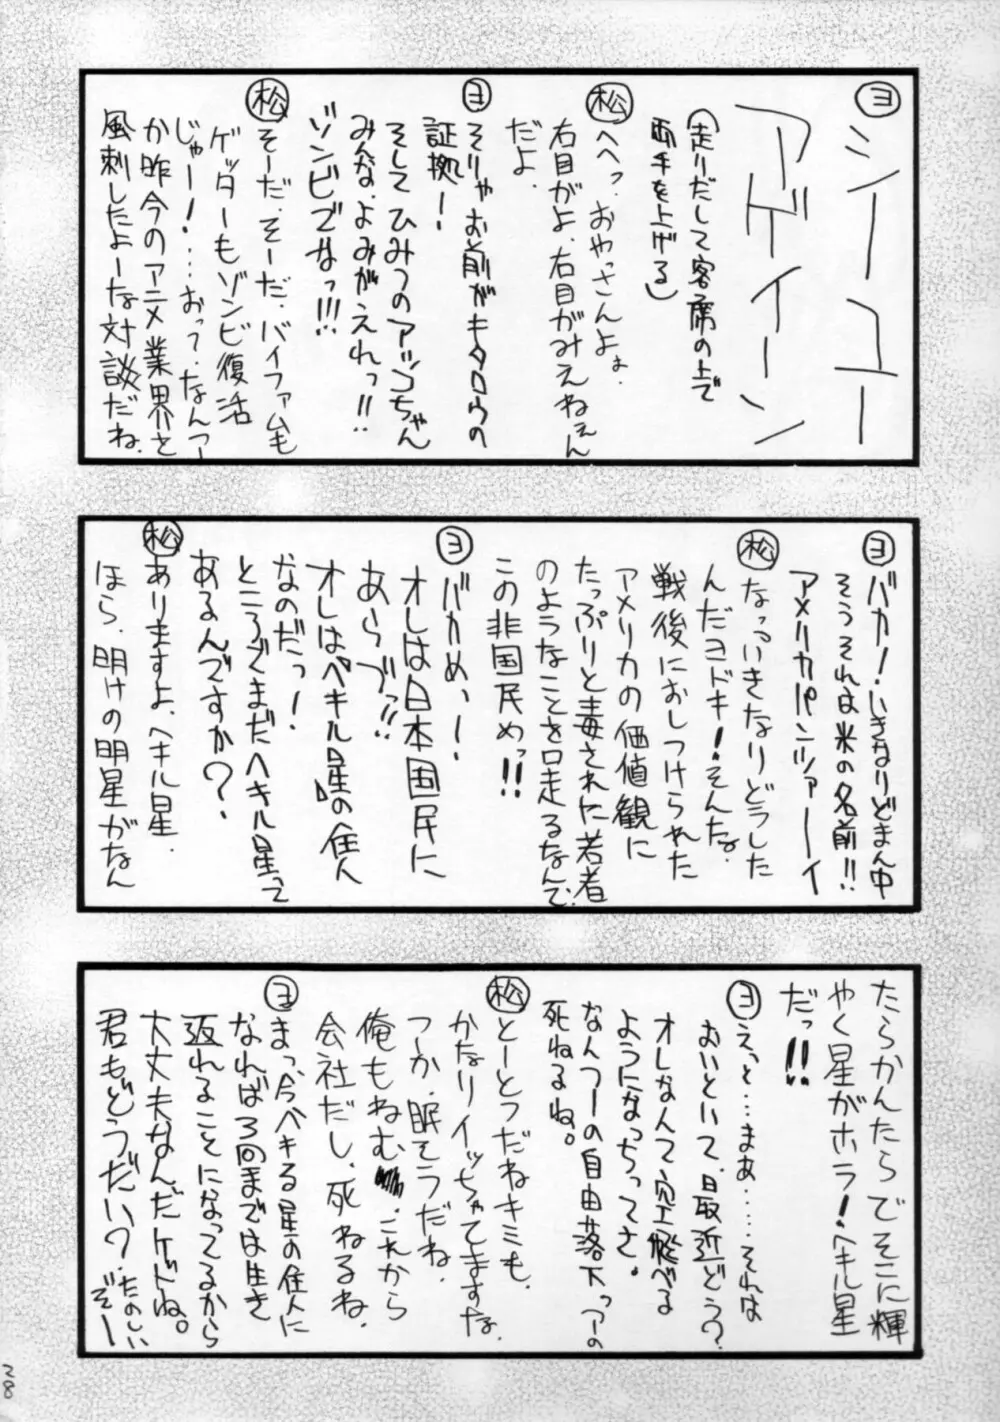 ヨ
シーユー
アゲイーン
(走りだして客席の上で
両手を上げる)
松
へへっ、おやっさんよぉ、
右目がよ、右目がみえねぇん
だよ、
ヨ
そりゃお前がキタロウの
証拠ー!
そしてひみつのアッコちゃん
みんな、よみがえれっ!!
ゾンビでなっ!!!
松
そーだ、そーだ、バイファムも
ゲッターもゾンビ復活
じゃー!…おって、なんつー
か昨今のアニメ業界を
風刺したよーな対談だね、
ヨ
バカ!いきなりどまん中
そうそれは米の名前!!
アメリカパンツァーイ
松
なっいきなりどうした
んだヨドキ!そんな、
戦後におしつけられた
アメリカの価値観に
たっぷりと毒された若者
のようなことを口走るなんて、
この非国民めっ!!
ヨ
バカめ、ー、
オレは日本国民に
あらずっ!!
オレはペキル星の住人
なのだっー!
ところでまだヘキル星って
あるんですか?
松
ありますよ、ヘキル星、
ほら、明けの明星がなん
たらかんたらでそこに輝
やく星がホラ!ヘキル星
だっ!!
ヨ
えっと…まあ……それは
おいといて、最近どう?
オレなんて空飛べる
ようになっちってさ。
なんつーの自由落下っつーの
死ねるね。
松
とーとつだねキミも、
かなりイッちゃてますな、
つーか、眠そうだね、
俺もねむ 、これから
会社だし、死ねるね、
ヨ
まっ、今ペキる星の住人に
なれば3回までは生き
返れることになってるから
大丈夫なんだケドね。
君もどうだい?たのしい
ぞー
28